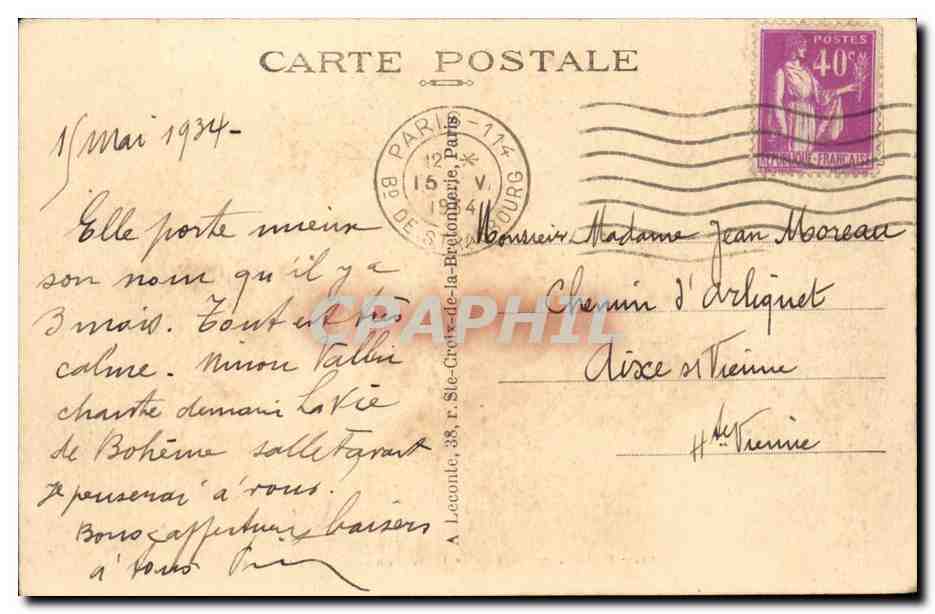 CARTE POSTALE
POSTES
40c
REPUBLIQUE-FRANÇAISE
PARIS-114
12 *
15 V
1934
Bd DE STRASBOURG
15 Mai 1934-
Elle porte mieux
son nom qu'il y a
3 mois. Tout est très
calme. Ninon Vallin
chante demain La Vie
de Bohême salle Favart
Je penserai à vous.
Bons affectueux baisers
à tous
A Leconte, 38, r. Ste-Croix-de-la-Bretonnerie, Paris.
Monsieur, Madame Jean Moreau
Chemin d'Arliquet
Aixe s/ Vienne
Hte Vienne
CRAPHIL